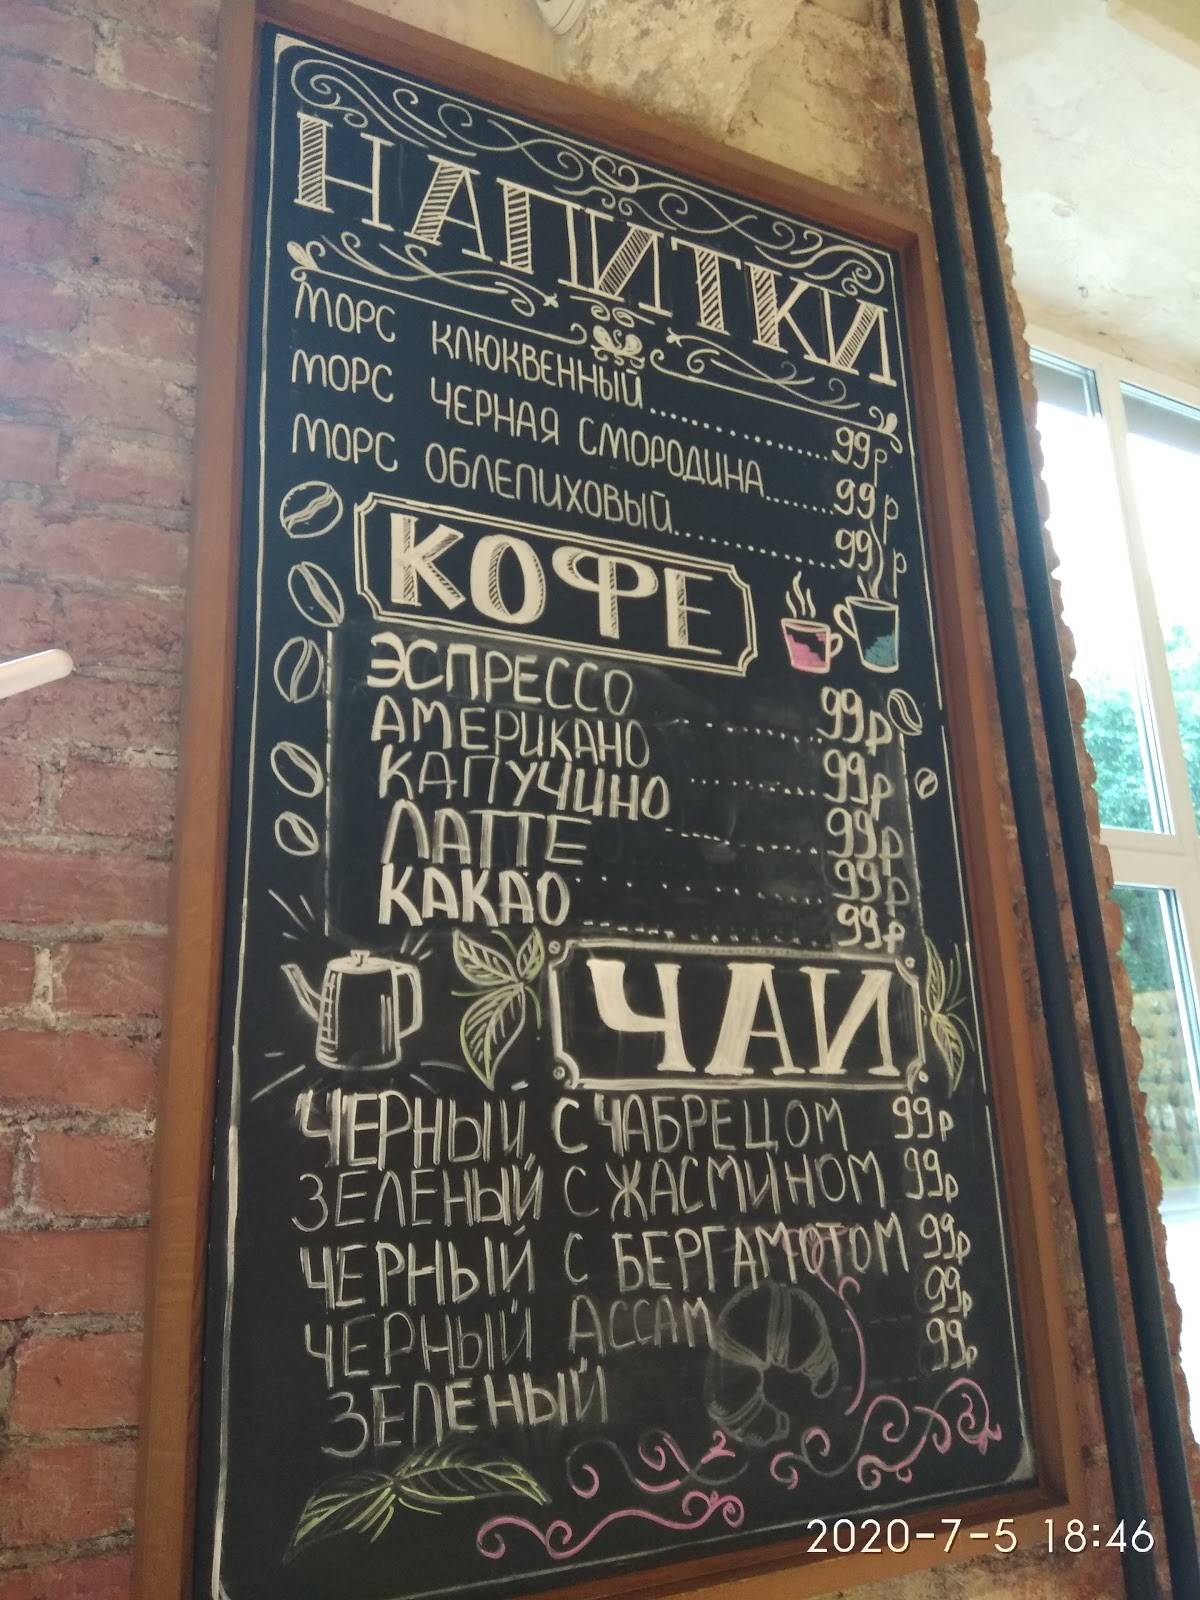 НАПИТКИ
МОРС КЛЮКВЕННЫЙ..................99р
МОРС ЧЕРНАЯ СМОРОДИНА.......99р
МОРС ОБЛЕПИХОВЫЙ...............99р
КОФЕ
ЭСПРЕССО ............ 99р
АМЕРИКАНО ............ 99р
КАПУЧИНО ............ 99р
ЛАТТЕ ............ 99р
КАКАО ............ 99р
ЧАЙ
ЧЕРНЫЙ С ЧАБРЕЦОМ 99р
ЗЕЛЕНЫЙ С ЖАСМИНОМ 99р
ЧЕРНЫЙ С БЕРГАМОТОМ 99р
ЧЕРНЫЙ АССАМ 99р
ЗЕЛЕНЫЙ 99р
2020-7-5 18:46